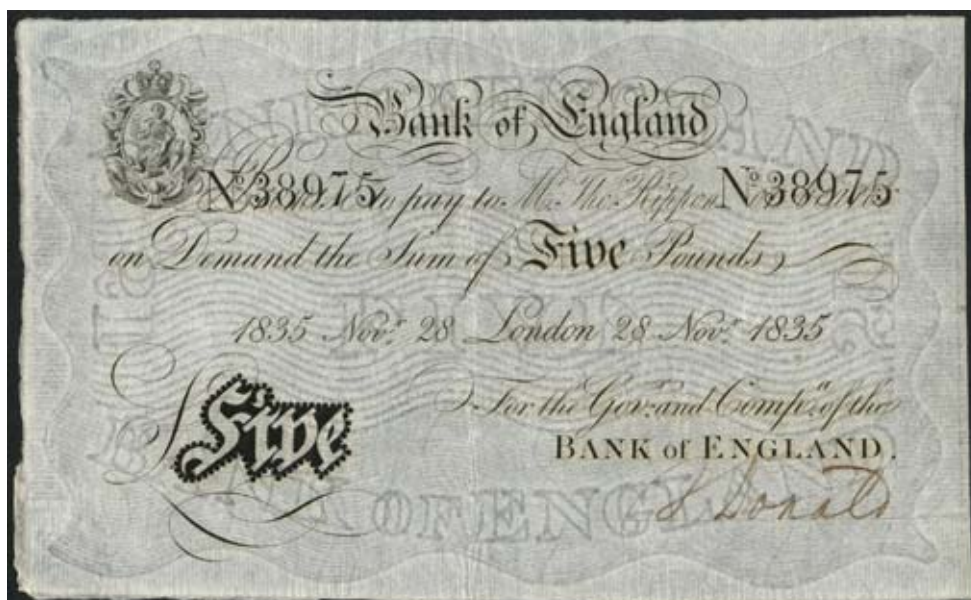 Bank of England
No 38975 to pay to Mr. Tho. Rippon No 38975
on Demand the Sum of Five Pounds
1835 Novr. 28 London 28 Novr. 1835
For the Govr. and Compa. of the
BANK of ENGLAND.
Five
Donald
FIVE
BANK OF ENGLAND